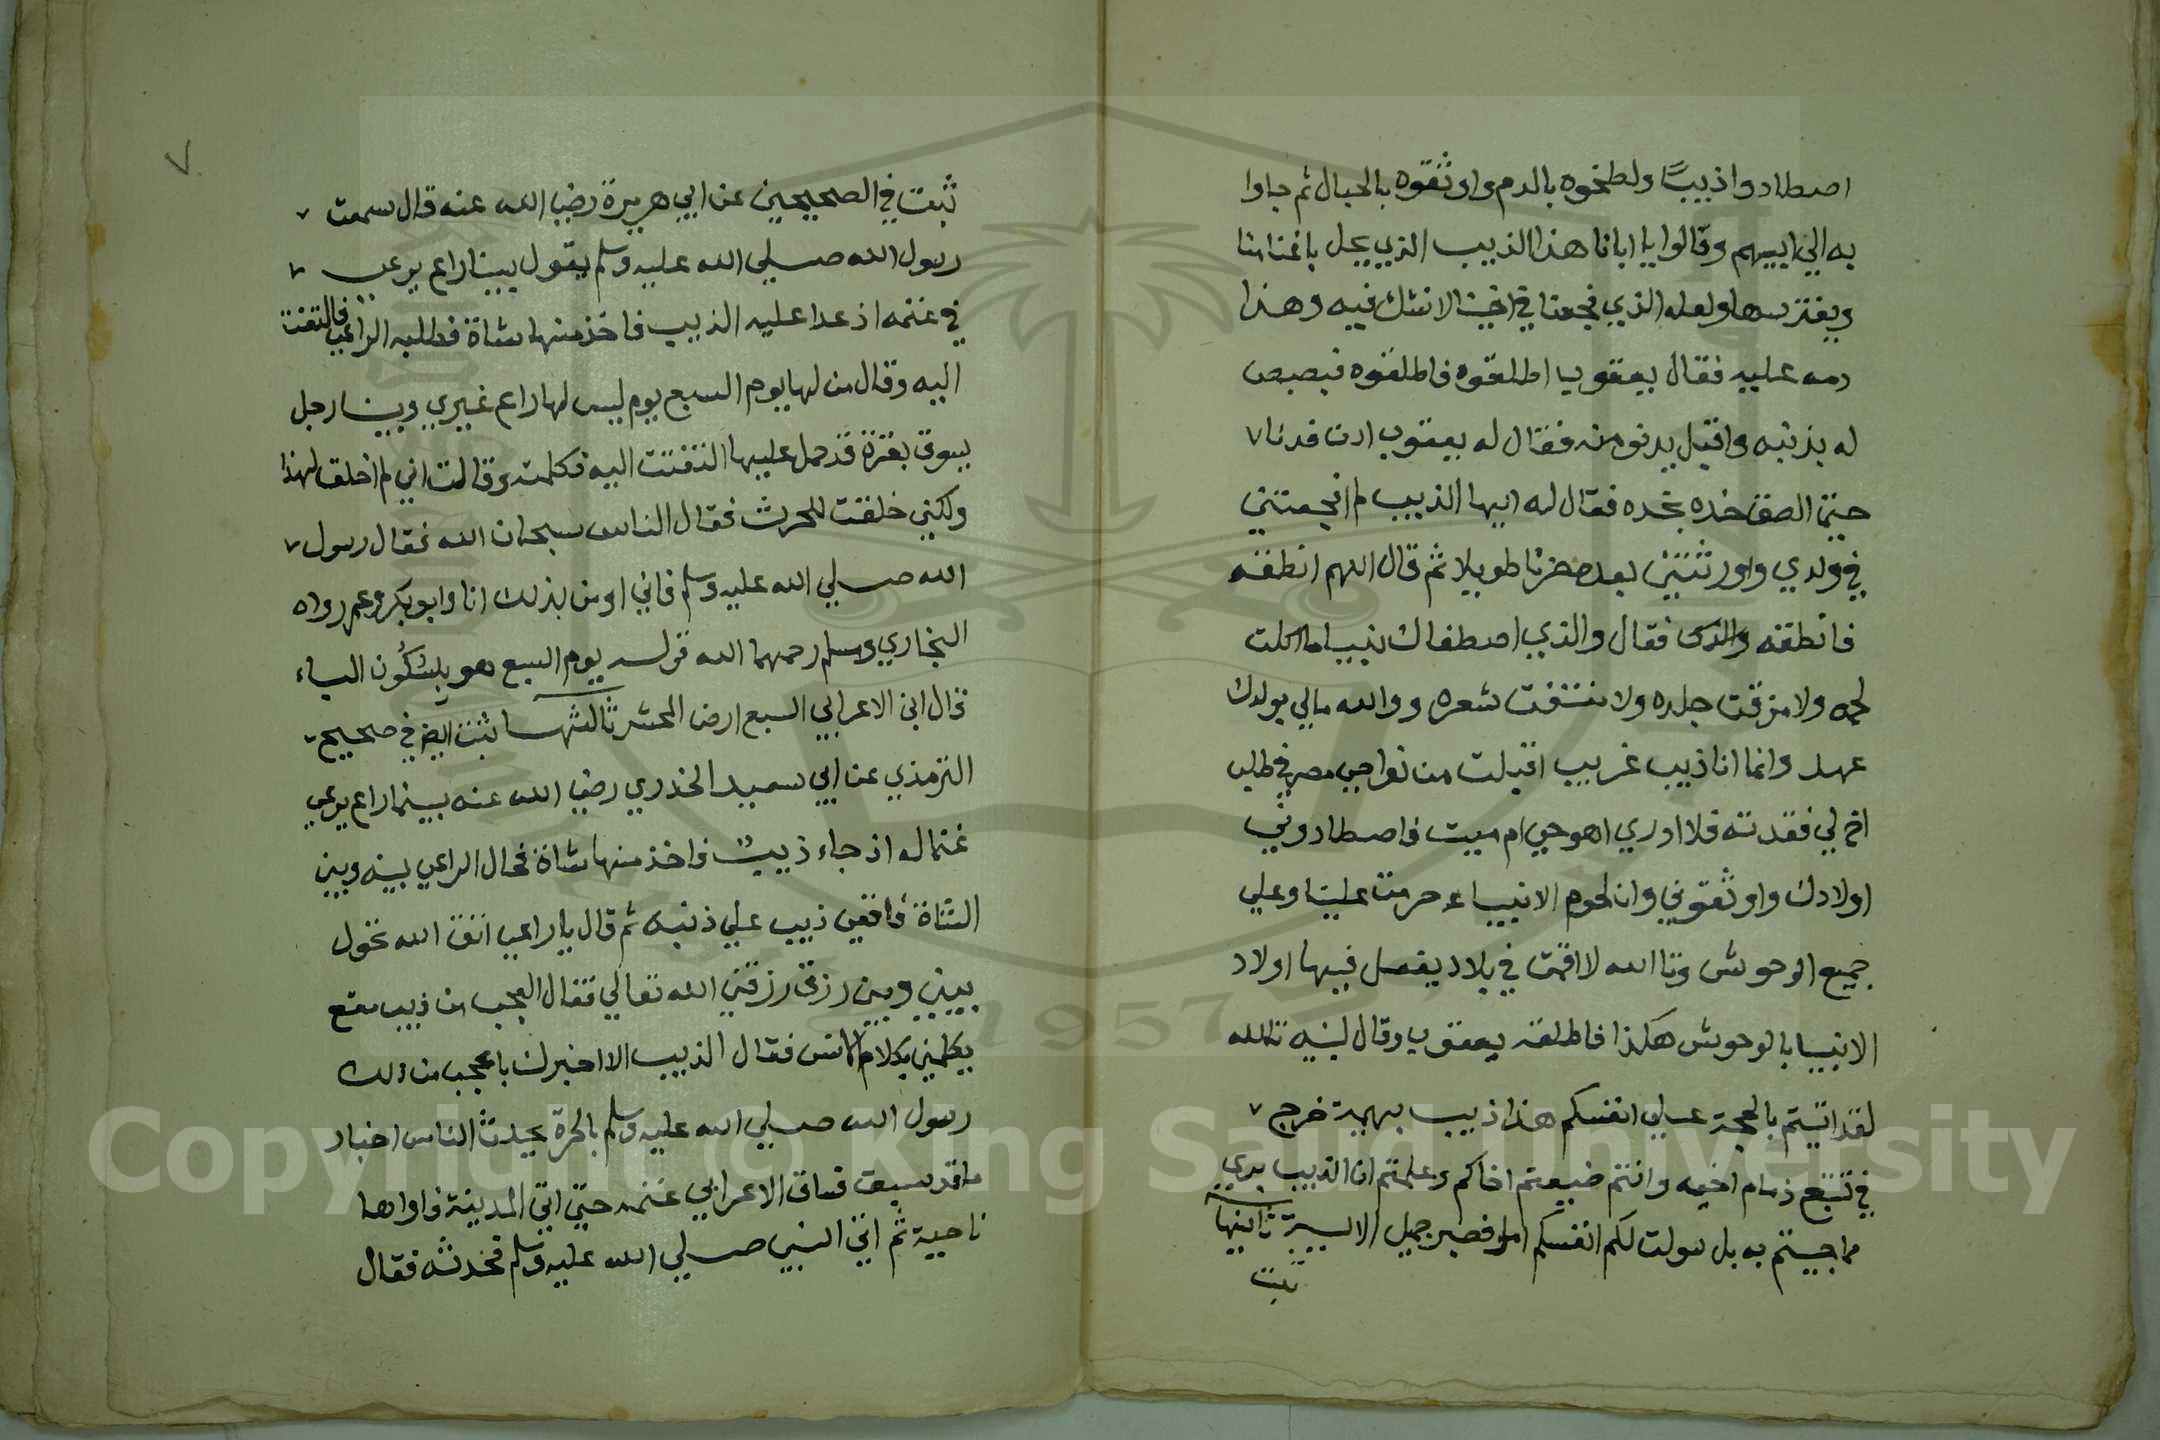 اصطادوا ذيبًا ولطخوه بالدم واوثقوه بالحبال ثم جاوا
به الي ابيهم وقالوا يا ابانا هذا الذيب الذي يحل باغنامنا
ويفترسها ولعله الذي فجعنا في اخينا لانشك فيه وهذا
دمه عليه فقال يعقوب اطلقوه فاطلقوه فبصبص
له بذنبه واقبل يدنو منه فقال له يعقوب ادن فدنا
حتي الصق خده بخده فقال له ايها الذيب لم افجعتني
في ولدي واورثتني بعده حزنا طويلا ثم قال اللهم انطقه
فانطقه فقال والذي اصطفاك نبيا ما اكلت
لحمه ولا مزقت جلده ولا نتفت شعره ووالله مالي بولدك
عهد وانما انا ذيب غريب اقبلت من نواحي مصر في طلب
اخ لي فقدته فلا ادري اهو حي ام ميت فاصطادوني
اولادك واوثقوني وان لحوم الانبياء حرمت علينا وعلي
جميع الوحوش وتا الله لا اقمت في بلاد يفعل فيها اولاد
الانبيا بالوحوش هكذا فاطلقه يعقوب وقال لبنيه تالله
لقد اتيتم بالحجة علي انفسكم هذا ذيب بهيمة خرج
في تتبع ذمام اخيه وانتم ضيعتم اخاكم وعلمتم ان الذيب بري
مما جيتم به بل سولت لكم انفسكم امرا فصبر جميل الاية ثانيها
ثبت
٧
ثبت في الصحيحين عن ابي هريرة رضي الله عنه قال سمعت
رسول الله صلي الله عليه وسلم يقول بينا راع يرعي
في غنمه اذ عدا عليه الذيب فاخذ منها شاة فطلبه الراعي فالتفت
اليه وقال من لها يوم السبع يوم ليس لها راع غيري وبينا رجل
يسوق بقرة قد حمل عليها التفتت اليه فكلمته وقالت اني لم اخلق لهذا
ولكني خلقت للحرث فقال الناس سبحان الله فقال رسول
الله صلي الله عليه وسلم فاني اومن بذلك انا وابو بكر وعمر رواه
البخاري ومسلم رحمهما الله قوله يوم السبع هو بسكون الباء
قال ابن الاعرابي السبع ارض المحشر ثالثها ثبت ايض في صحيح
الترمذي عن ابي سعيد الخدري رضي الله عنه بينما راع يرعي
غنما له اذ جاء ذيب فاخذ منها شاة فحال الراعي بينه وبين
الشاة فاقعي ذيب علي ذنبه ثم قال يا راعي اتق الله تحول
بيني وبين رزق رزقني الله تعالي فقال العجب من ذيب مقع
يكلمني بكلام الانس فقال الذيب الا اخبرك باعجب من ذلك
رسول الله صلي الله عليه وسلم بالحرة يحدث الناس اخبار
ما قد سبق فساق الاعرابي غنمه حتي اتي المدينة فاواها
ناحية ثم اتي النبي صلي الله عليه وسلم فحدثه فقال
1957
Copyright © King Saud University